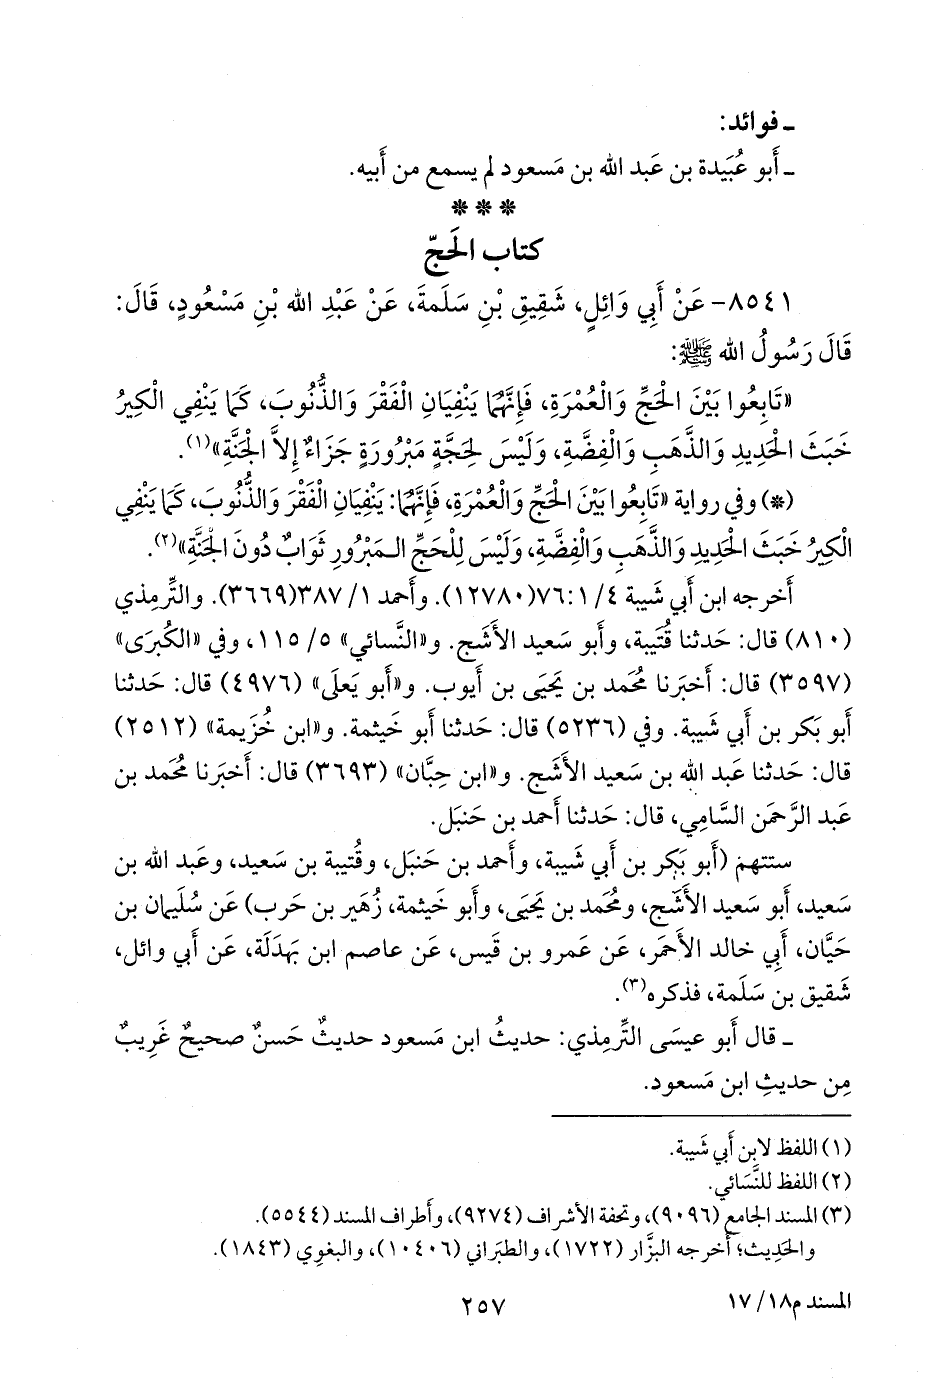 ـ فوائد:
ـ أَبو عُبَيدة بن عَبد الله بن مَسعود لم يسمع من أَبيه.
* * *
كتاب الحَجّ
٨٥٤١- عَنْ أَبِي وَائِلٍ، شَقِيقِ بْنِ سَلَمةَ، عَنْ عَبْدِ الله بْنِ مَسْعُودٍ، قَالَ:
قَالَ رَسُولُ الله ﷺ:
«تَابِعُوا بَيْنَ الْحَجِّ وَالْعُمْرَةِ، فَإِنَّهُمَا يَنْفِيَانِ الْفَقْرَ وَالذُّنُوبَ، كَمَا يَنْفِي الْكِيرُ
خَبَثَ الْحَدِيدِ وَالذَّهَبِ وَالْفِضَّةِ، وَلَيْسَ لِحَجَّةٍ مَبْرُورَةٍ جَزَاءٌ إِلاَّ الْجَنَّةِ»(١).
(*) وفي رواية «تَابِعُوا بَيْنَ الْحَجِّ وَالْعُمْرَةِ، فَإِنَّهُمَا: يَنْفِيَانِ الْفَقْرَ وَالذُّنُوبَ، كَمَا يَنْفِي
الْكِيرُ خَبَثَ الْحَدِيدِ وَالذَّهَبِ وَالْفِضَّةِ، وَلَيْسَ لِلْحَجِّ الـمَبْرُورِ ثَوَابٌ دُونَ الْجَنَّةِ»(٢).
أَخرجه ابن أَبي شَيبة ٤/ ١:٧٦(١٢٧٨٠). وأَحمد ١/ ٣٨٧(٣٦٦٩). والتِّرمِذي
(٨١٠) قال: حَدثنا قُتَيبة، وأَبو سَعيد الأَشج. و«النَّسائي» ٥/ ١١٥، وفي «الكُبرَى»
(٣٥٩٧) قال: أَخبَرنا مُحمد بن يَحيَى بن أَيوب. و«أَبو يَعلَى» (٤٩٧٦) قال: حَدثنا
أَبو بَكر بن أَبي شَيبة. وفي (٥٢٣٦) قال: حَدثنا أَبو خَيثمة. و«ابن خُزَيمة» (٢٥١٢)
قال: حَدثنا عَبد الله بن سَعيد الأَشج. و«ابن حِبَّان» (٣٦٩٣) قال: أَخبَرنا مُحمد بن
عَبد الرَّحمَن السَّامِي، قال: حَدثنا أَحمد بن حَنبَل.
ستتهم (أَبو بَكر بن أَبي شَيبة، وأَحمد بن حَنبَل، وقُتيبة بن سَعيد، وعَبد الله بن
سَعيد، أَبو سَعيد الأَشَج، ومُحمد بن يَحيَى، وأَبو خَيثمة، زُهَير بن حَرب) عَن سُلَيمان بن
حَيَّان، أَبي خالد الأَحمَر، عَن عَمرو بن قَيس، عَن عاصم ابن بَهدَلَة، عَن أَبي وائل،
شَقيق بن سَلَمة، فذكره(٣).
ـ قال أَبو عيسَى التِّرمِذي: حديثُ ابن مَسعود حديثٌ حَسنٌ صحيحٌ غَريبٌ
مِن حديثِ ابن مَسعود.
(١) اللفظ لابن أَبي شَيبة.
(٢) اللفظ للنَّسَائي.
(٣) المسند الجامع (٩٠٩٦)، وتحفة الأشراف (٩٢٧٤)، وأَطراف المسند (٥٥٤٤).
والحَدِيث؛ أَخرجه البزَّار (١٧٢٢)، والطبَراني (١٠٤٠٦)، والبغوِي (١٨٤٣).
المسند م١٨/ ١٧
٢٥٧